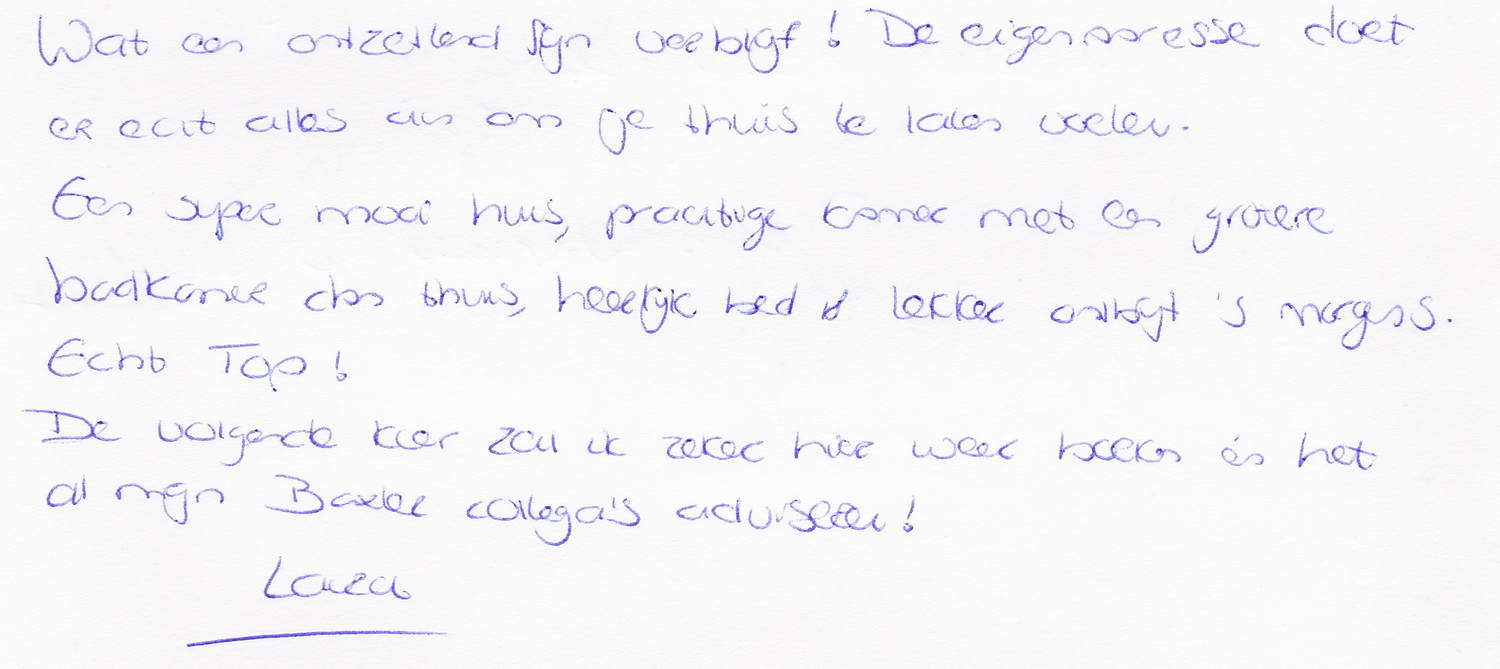 Wat een ontzettend fijn verblijf! De eigenaresse doet
er echt alles aan om je thuis te laten voelen.
Een super mooi huis, prachtige kamer met een grotere
badkamer dan thuis, heerlijk bed & lekker ontbijt 's morgens.
Echt Top!
De volgende keer zal ik zeker hier weer boeken én het
al mijn Baxter collega's adviseren!
Laura